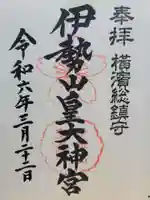 奉拝
横濱総鎮守
伊勢山皇大神宮
令和六年三月二十二日